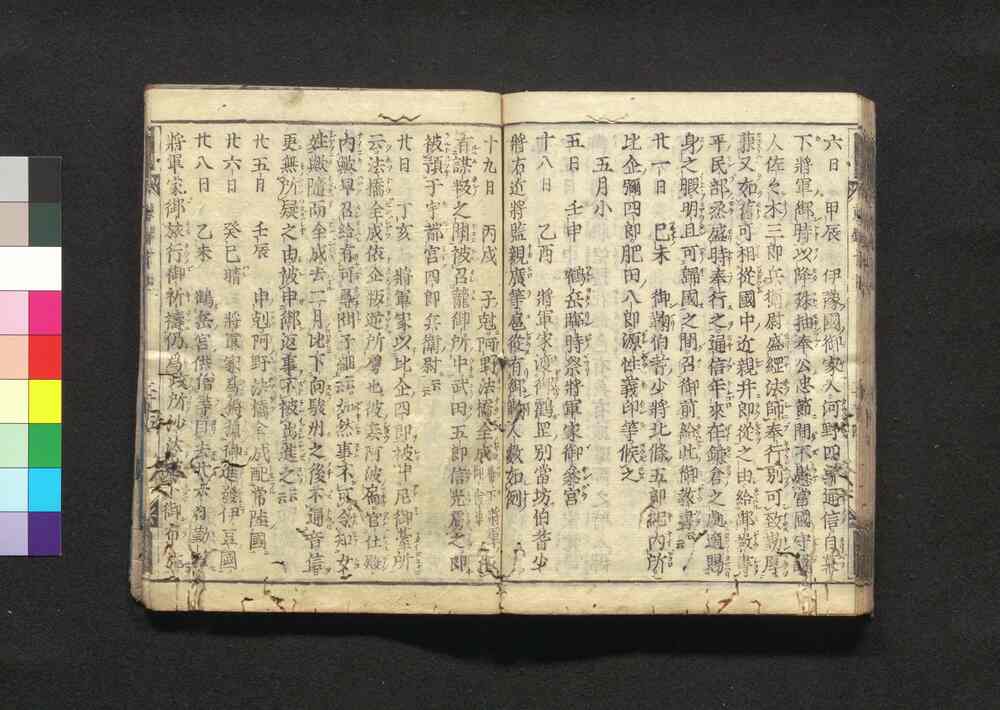 六日　甲辰　伊豫國御家人河野四郎通信自幕
下將軍御時以降殊抽奉公忠節間不懸當國守護
人佐々木三郎兵衛尉盛經法師奉行別可致勤厚
兼又如舊可相從國中近親并郎從之由給御教書
平民部丞盛時奉行之通信年來在鎌倉之處適賜
身之暇明旦可歸國之間召御前給此御教書
廿一日　己未　御鞠伯耆少將北條五郎紀內所
比企彌四郎肥田八郎源性義印等候之
五月小
五日　壬申　鶴岳臨時祭將軍家御參宮
十八日　乙酉　將軍家渡御鶴岳別當坊伯耆少
將右近將監親廣等扈從有御鞠人數如例
十九日　丙戌　子尅阿野法橋全成
有謀叛之聞被召籠御所中武田五郎信光虜之即
被預于宇都宮四郎兵衛尉云云
廿日　丁亥　將軍家以比企四郎被申尼御臺所
云法橋全成依企叛逆所虜也彼妾阿波局官仕殿
內歟早召給有可尋問子細云云如然事不可令知女
性歟隨而全成去二月比下向駿州之後不通音信
更無所疑之由被申御返事不被出進之云云
廿五日　壬辰　申剋阿野法橋全成配常陸國
廿六日　癸巳晴　將軍家爲御狩御進發伊豆國
廿八日　乙未　鶴岳宮供僧等自去廿六日勤
將軍家御旅行御祈禱仍爲政所沙汰　御布施